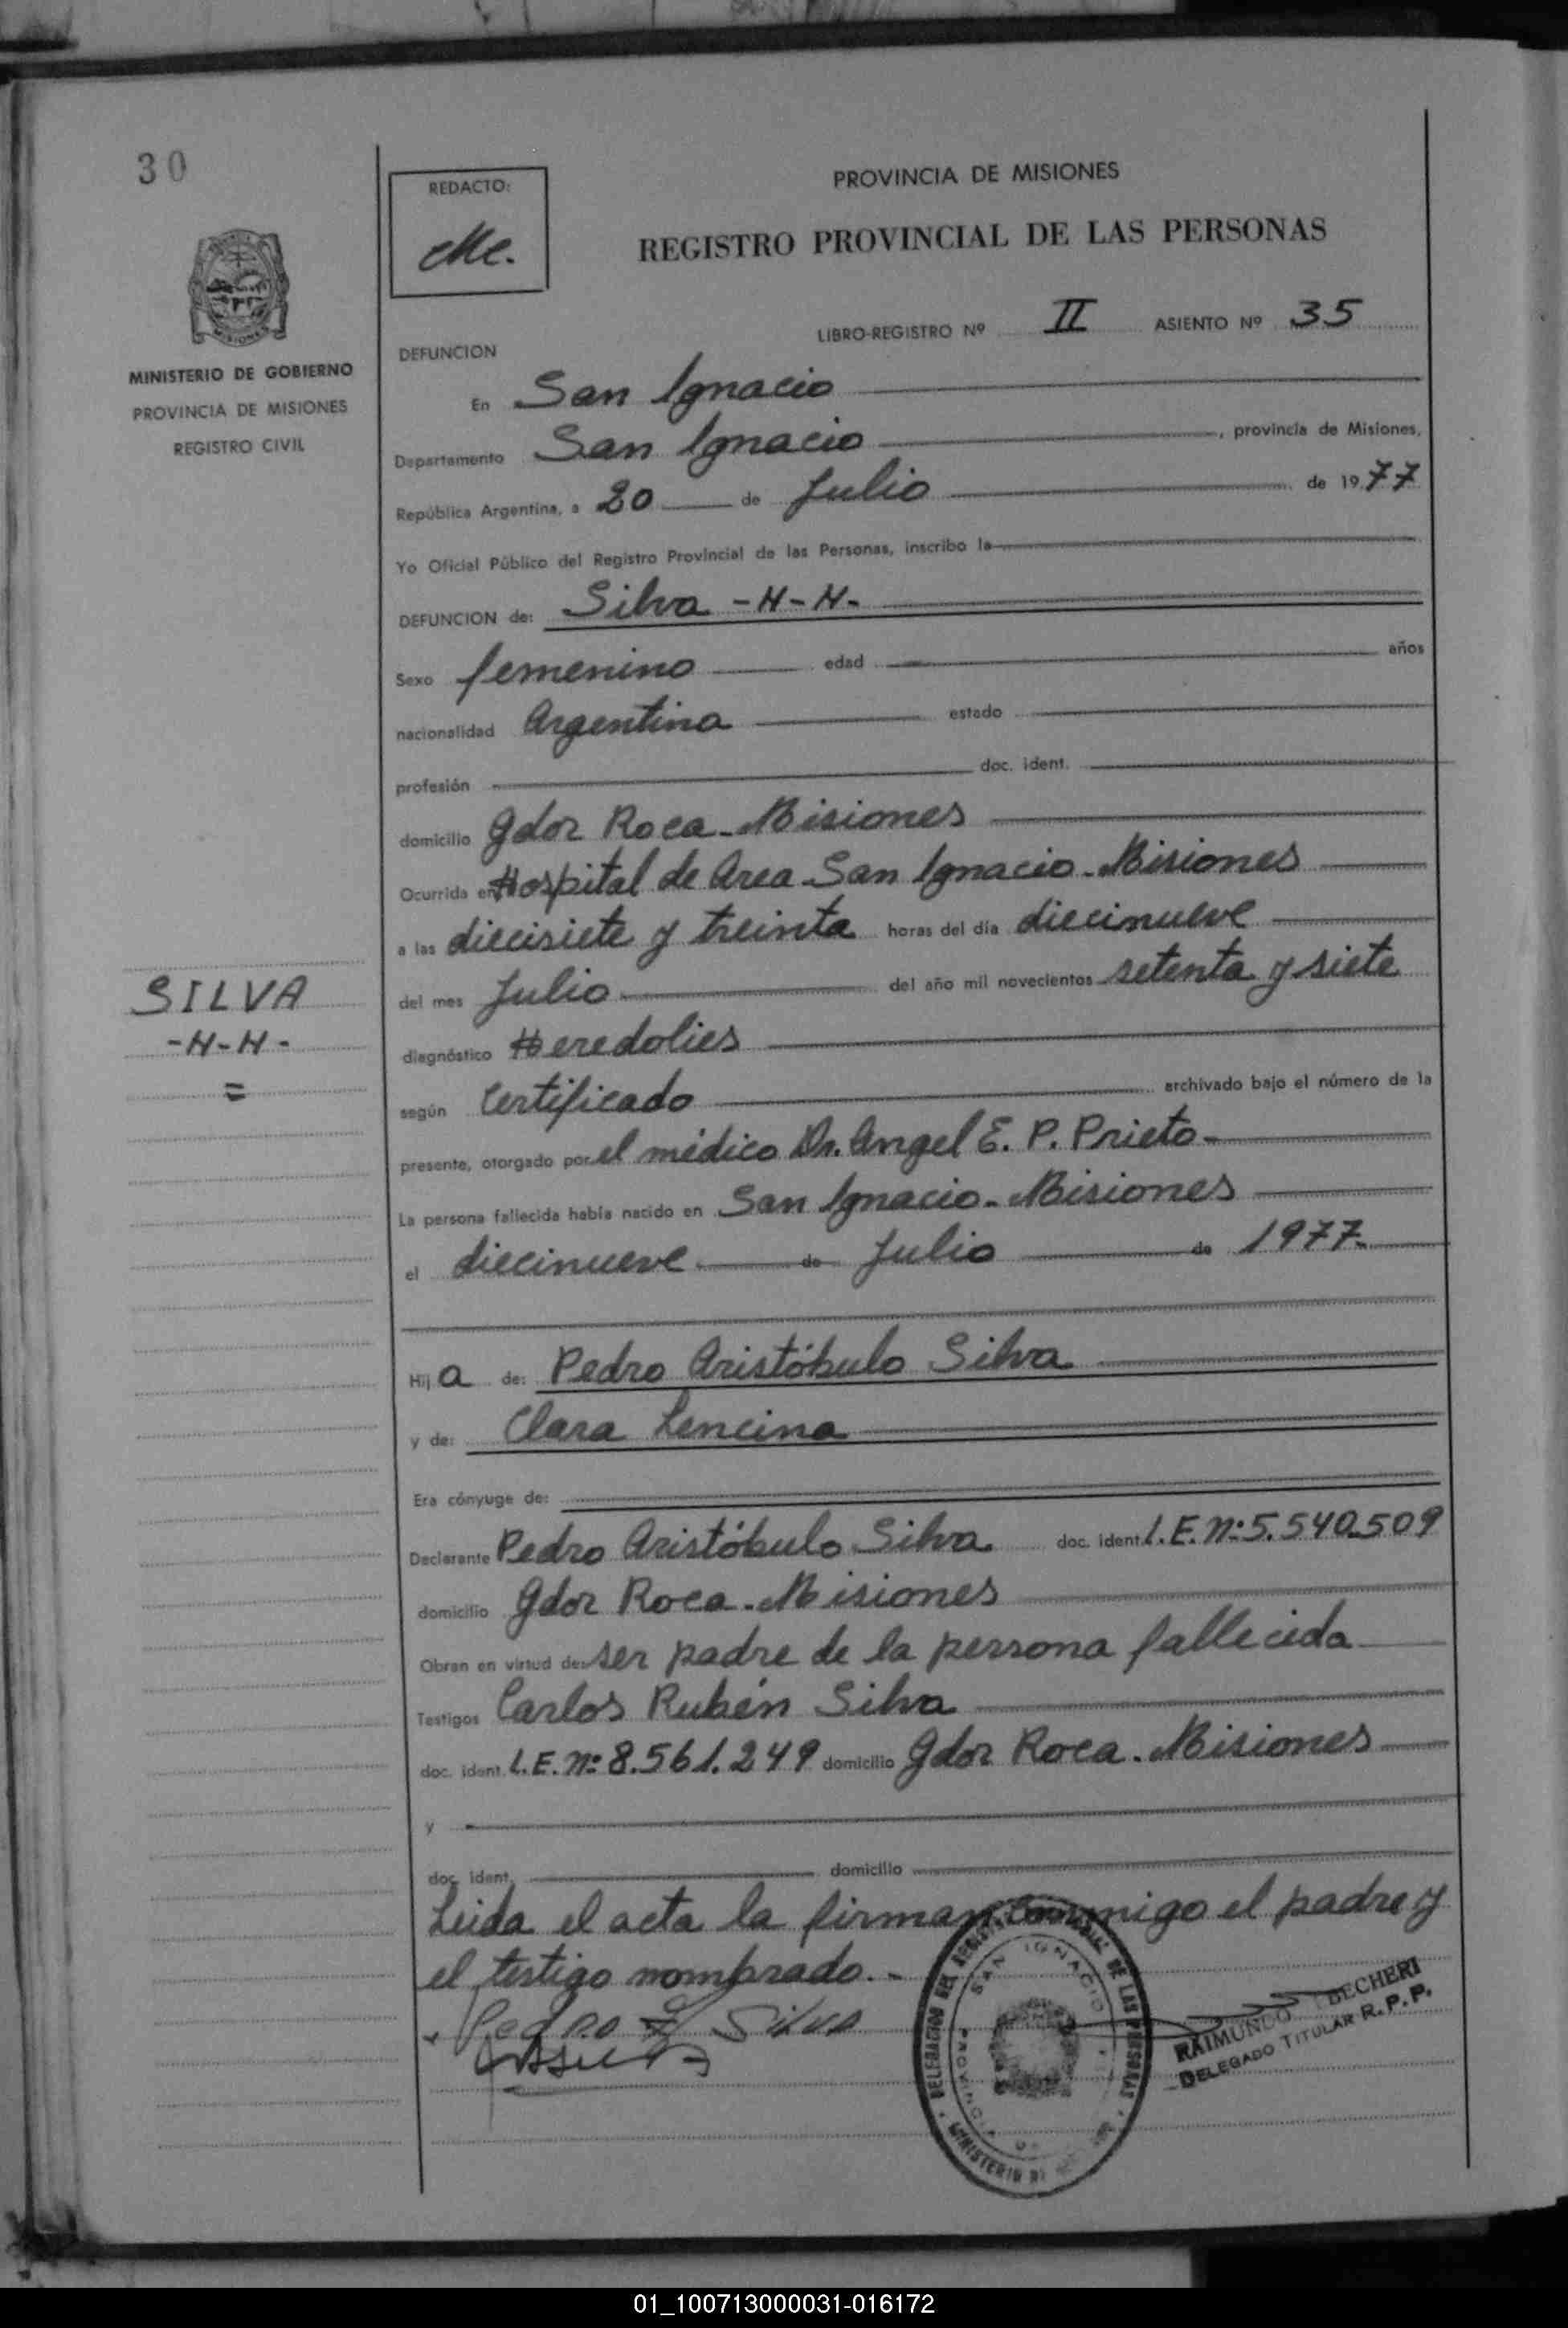 30
REDACTO:
Mc.
PROVINCIA DE MISIONES
REGISTRO PROVINCIAL DE LAS PERSONAS
LIBRO-REGISTRO Nº II ASIENTO Nº 35
MINISTERIO DE GOBIERNO
PROVINCIA DE MISIONES
REGISTRO CIVIL
DEFUNCION
En San Ignacio
Departamento San Ignacio, provincia de Misiones,
República Argentina, a 20 de Julio de 1977
Yo Oficial Público del Registro Provincial de las Personas, inscribo la
DEFUNCION de: Silva -N-N-
Sexo femenino edad años
nacionalidad Argentina estado
profesión doc. ident.
domicilio Gdor Roca - Misiones
Ocurrida en Hospital de Area San Ignacio - Misiones
a las diecisiete y treinta horas del día diecinueve
del mes Julio del año mil novecientos setenta y siete
SILVA
-N-N-
=
diagnóstico Heredolies
según Certificado archivado bajo el número de la
presente, otorgado por el médico Dr. Angel E. P. Prieto-
La persona fallecida había nacido en San Ignacio - Misiones
el diecinueve de Julio de 1977.
Hija de: Pedro Aristóbulo Silva
y de: Clara Lencina
Era cónyuge de:
Declarante Pedro Aristóbulo Silva doc. ident L.E. Nº 5.540.509
domicilio Gdor Roca - Misiones
Obran en virtud de: ser padre de la persona fallecida
Testigos Carlos Rubén Silva
doc. ident. L.E. Nº 8.561.249 domicilio Gdor Roca - Misiones
y
doc. ident. domicilio
Leida el acta la firman conmigo el padre y
el testigo nombrado.-
Pedro A Silva
DELEGACION DEL REGISTRO PROVINCIAL DE LAS PERSONAS
SAN IGNACIO
PROVINCIA
MINISTERIO
RAIMUNDO BECHERI
DELEGADO TITULAR R.P.P.
01_100713000031-016172